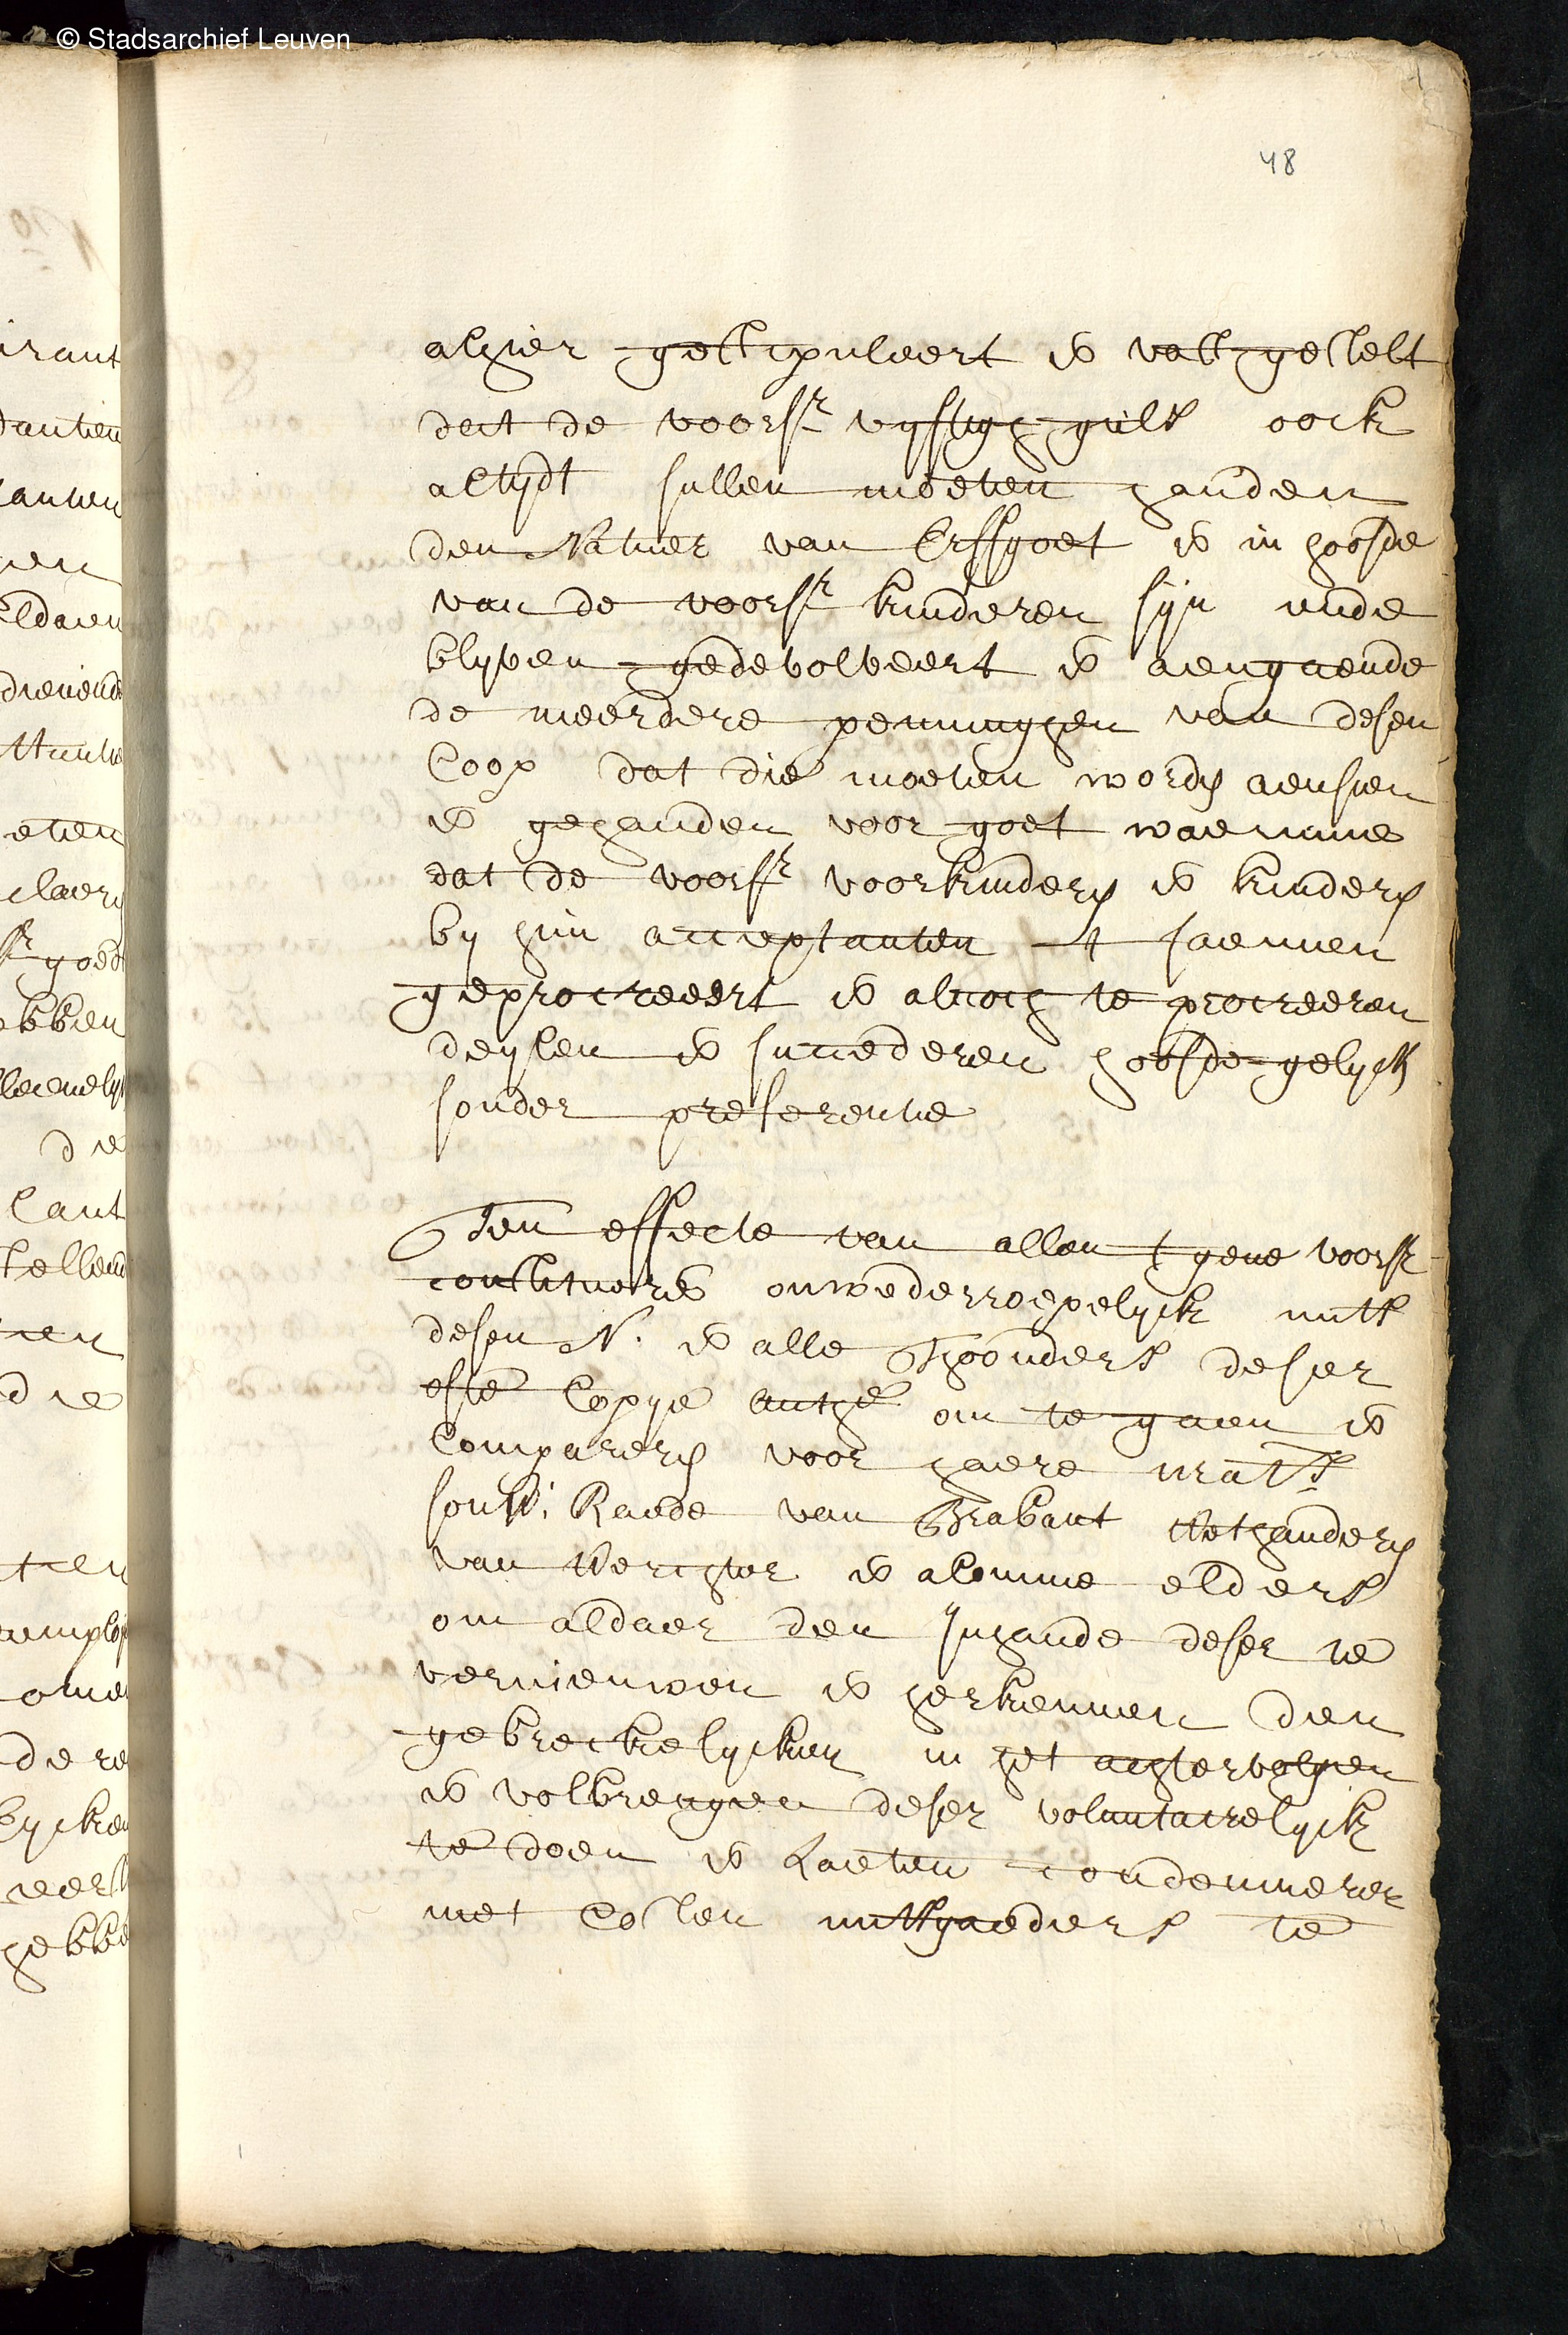 © Stadsarchief Leuven
48
alhier gestipuleert is vastgestelt
dat de voorsr vyftigh guls oock
altydt sullen moeten handen
den Natuer van Erffgoet is in hoofde
van de voorsr kinderen sijn ende
blyven gedevolveert is aengaende
de meerdere penninghen van desen
Coop dat die moeten worden aensien
is gehauden voor goet waerinne
dat de voorsr voorkinderen is kinderen
by hun acceptanten t saemen
geprocreeert is alnoch te procreeren
deylen is succederen hoofde gelyck
sonder preferentie
Ten effecte van allen t gene voorsr
constitueren onwederroepelyck mits
desen N. is alle Thoonders deser
ofte Copye auth om te gaen is
Compareren voor haere mats
souv: Raede van Brabant Methanderen
van Werchter is alomme elders
om aldaer den Inhaude deser te
vernieuwen is herkennen den
gebreckelycken in het achtervolgen
is volbrengen deser voluntairelyck
te doen is Laeten condemneren
met Costen mitsgaeders te